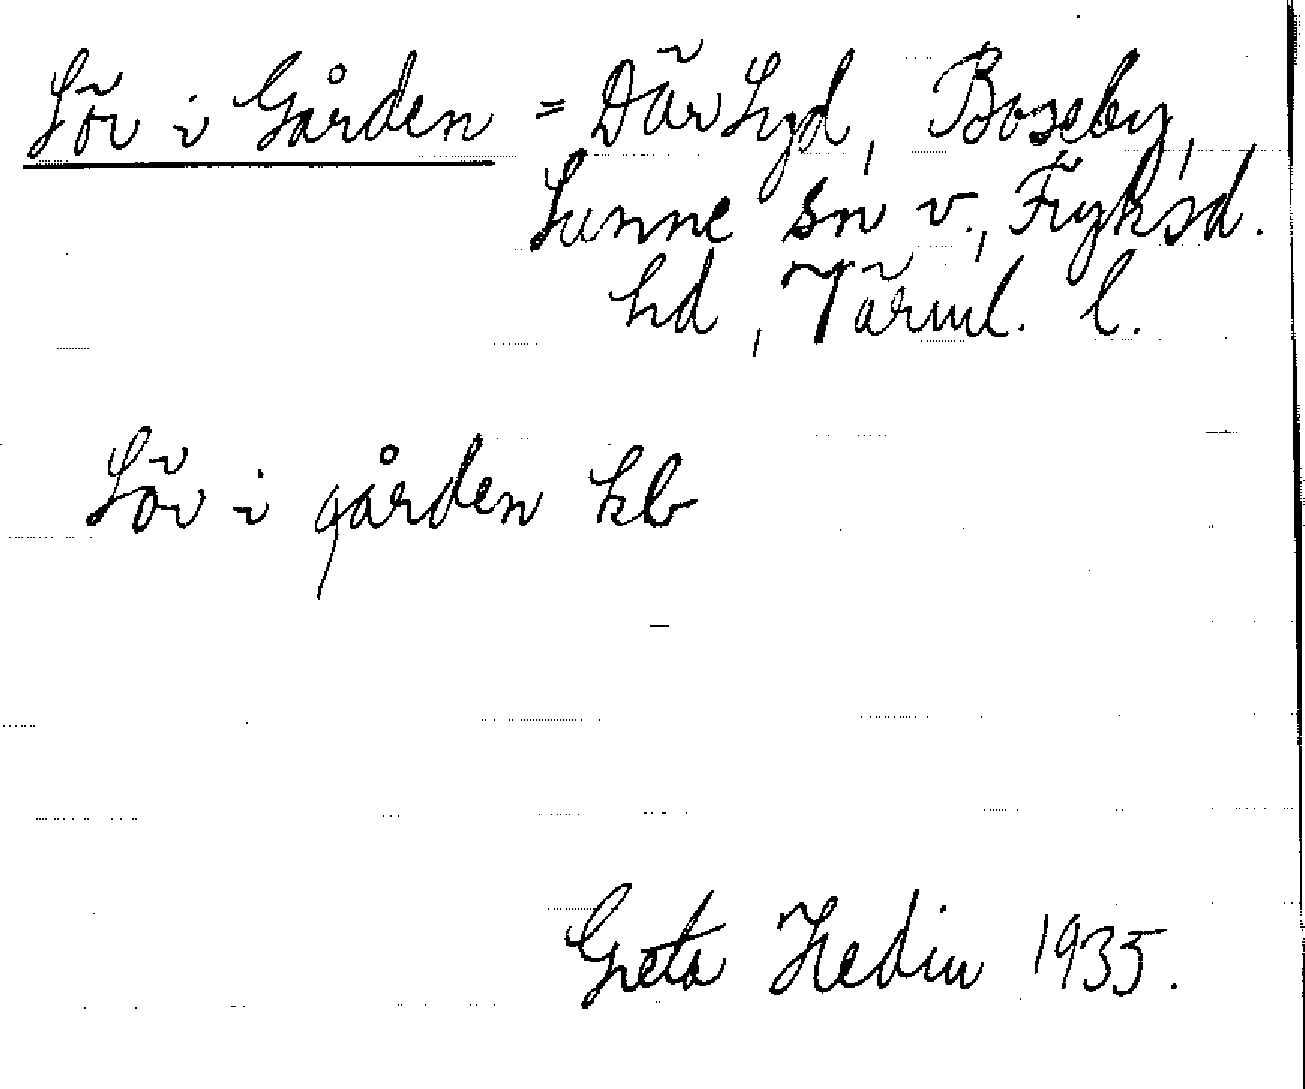 Sör i Gården = Där Syd, Boseby,
Sunne sn v., Fryksd.
hd, Värml. l.
Sör i gården kb
Greta Hedin 1935.